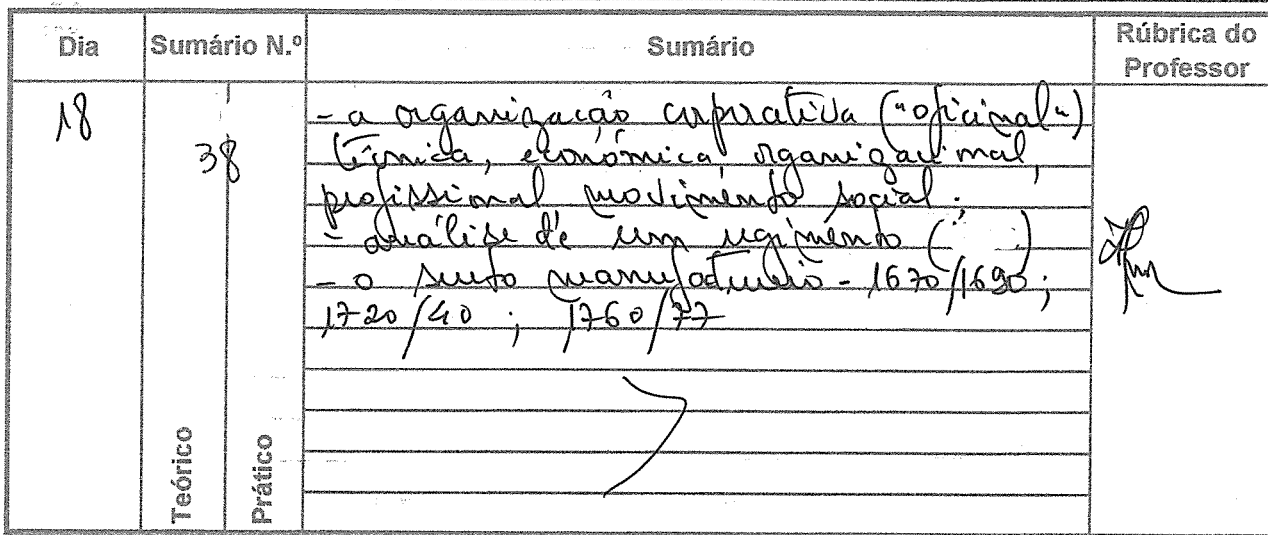 Dia Sumário N.º Sumário Rúbrica do Professor
18
38
- a organização corporativa ("oficinal")
técnica, económica, organizacional,
profissional movimento social.
- análise de um regimento (
- o surto manufactureiro - 1670/1690;
1720/40 ; 1760/77
Teórico
Prático